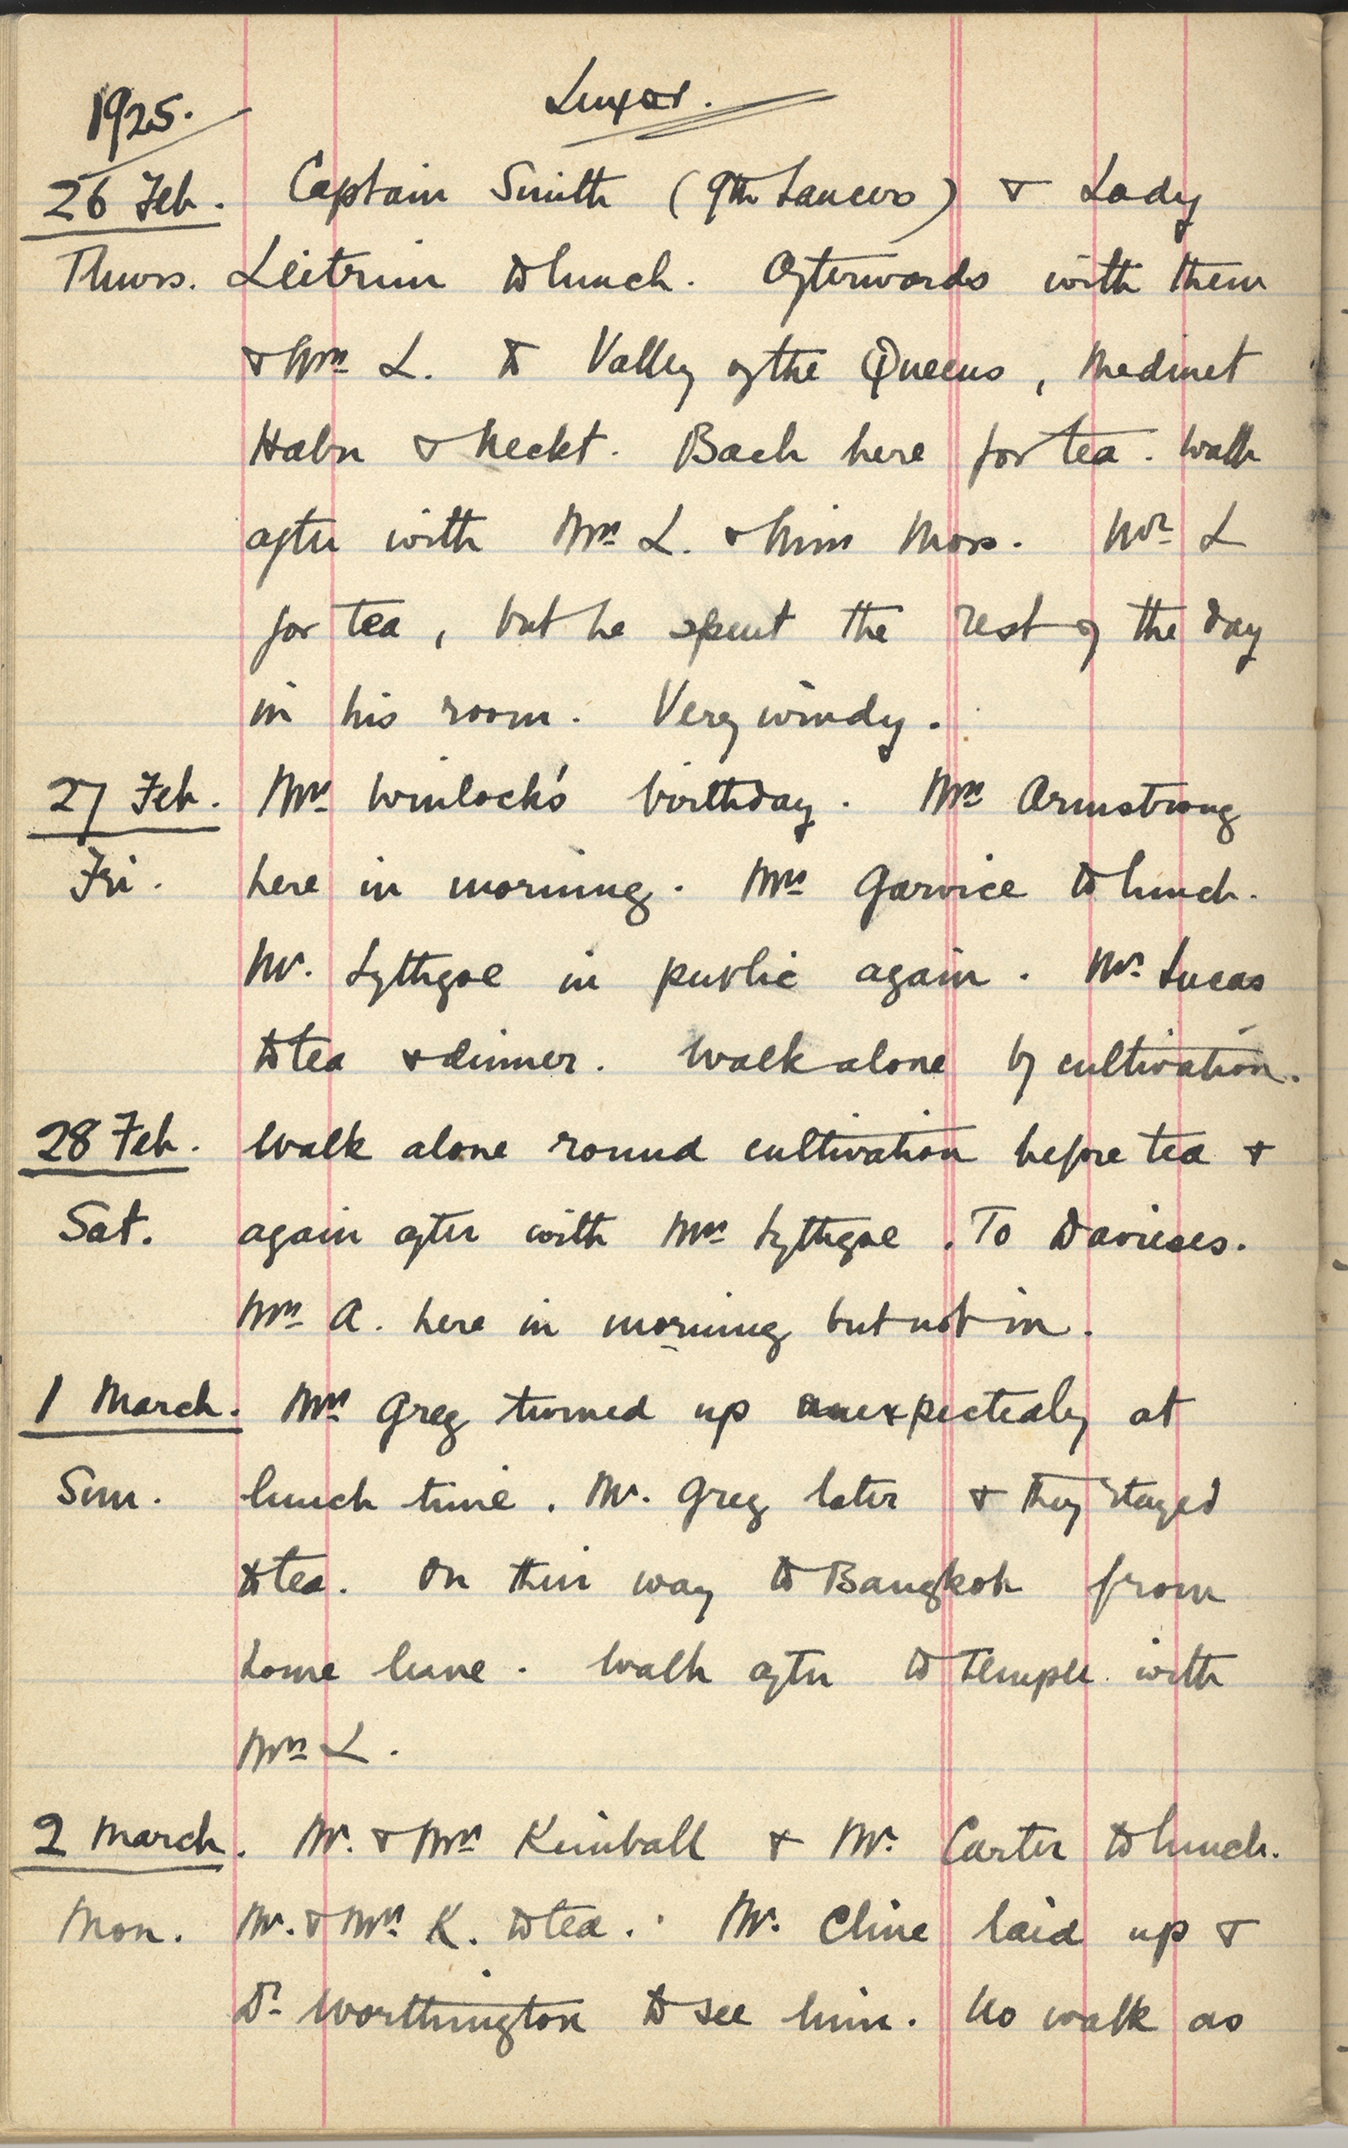 1925. Luxor.
26 Feb. Captain Smith (9th Lancers) & Lady
Thurs. Leitrim to lunch. Afterwards with them
& Mrs L. to Valley of the Queens, Medinet
Habu & Neckt. Back here for tea. Walk
after with Mrs L. & Miss Moss. Mr L
for tea, but he spent the rest of the day
in his room. Very windy.
27 Feb. Mrs Winlock's birthday. Mrs Armstrong
Fri. here in morning. Mrs Garvice to lunch.
Mr. Lythgoe in public again. Mr Lucas
to tea & dinner. Walk alone by cultivation.
28 Feb. Walk alone round cultivation before tea &
Sat. again after with Mrs Lythgoe. To Davieses.
Mrs A. here in morning but not in.
1 March. Mrs Greg turned up unexpectedly at
Sun. lunch time. Mr. Greg later & they stayed
to tea. On their way to Bangkok from
home leave. Walk after to temple with
Mrs L.
2 March. Mr. & Mrs Kimball & Mr. Carter to lunch.
Mon. Mr. & Mrs K. to tea. Mr. Cline laid up &
Dr Worthington to see him. No walk as